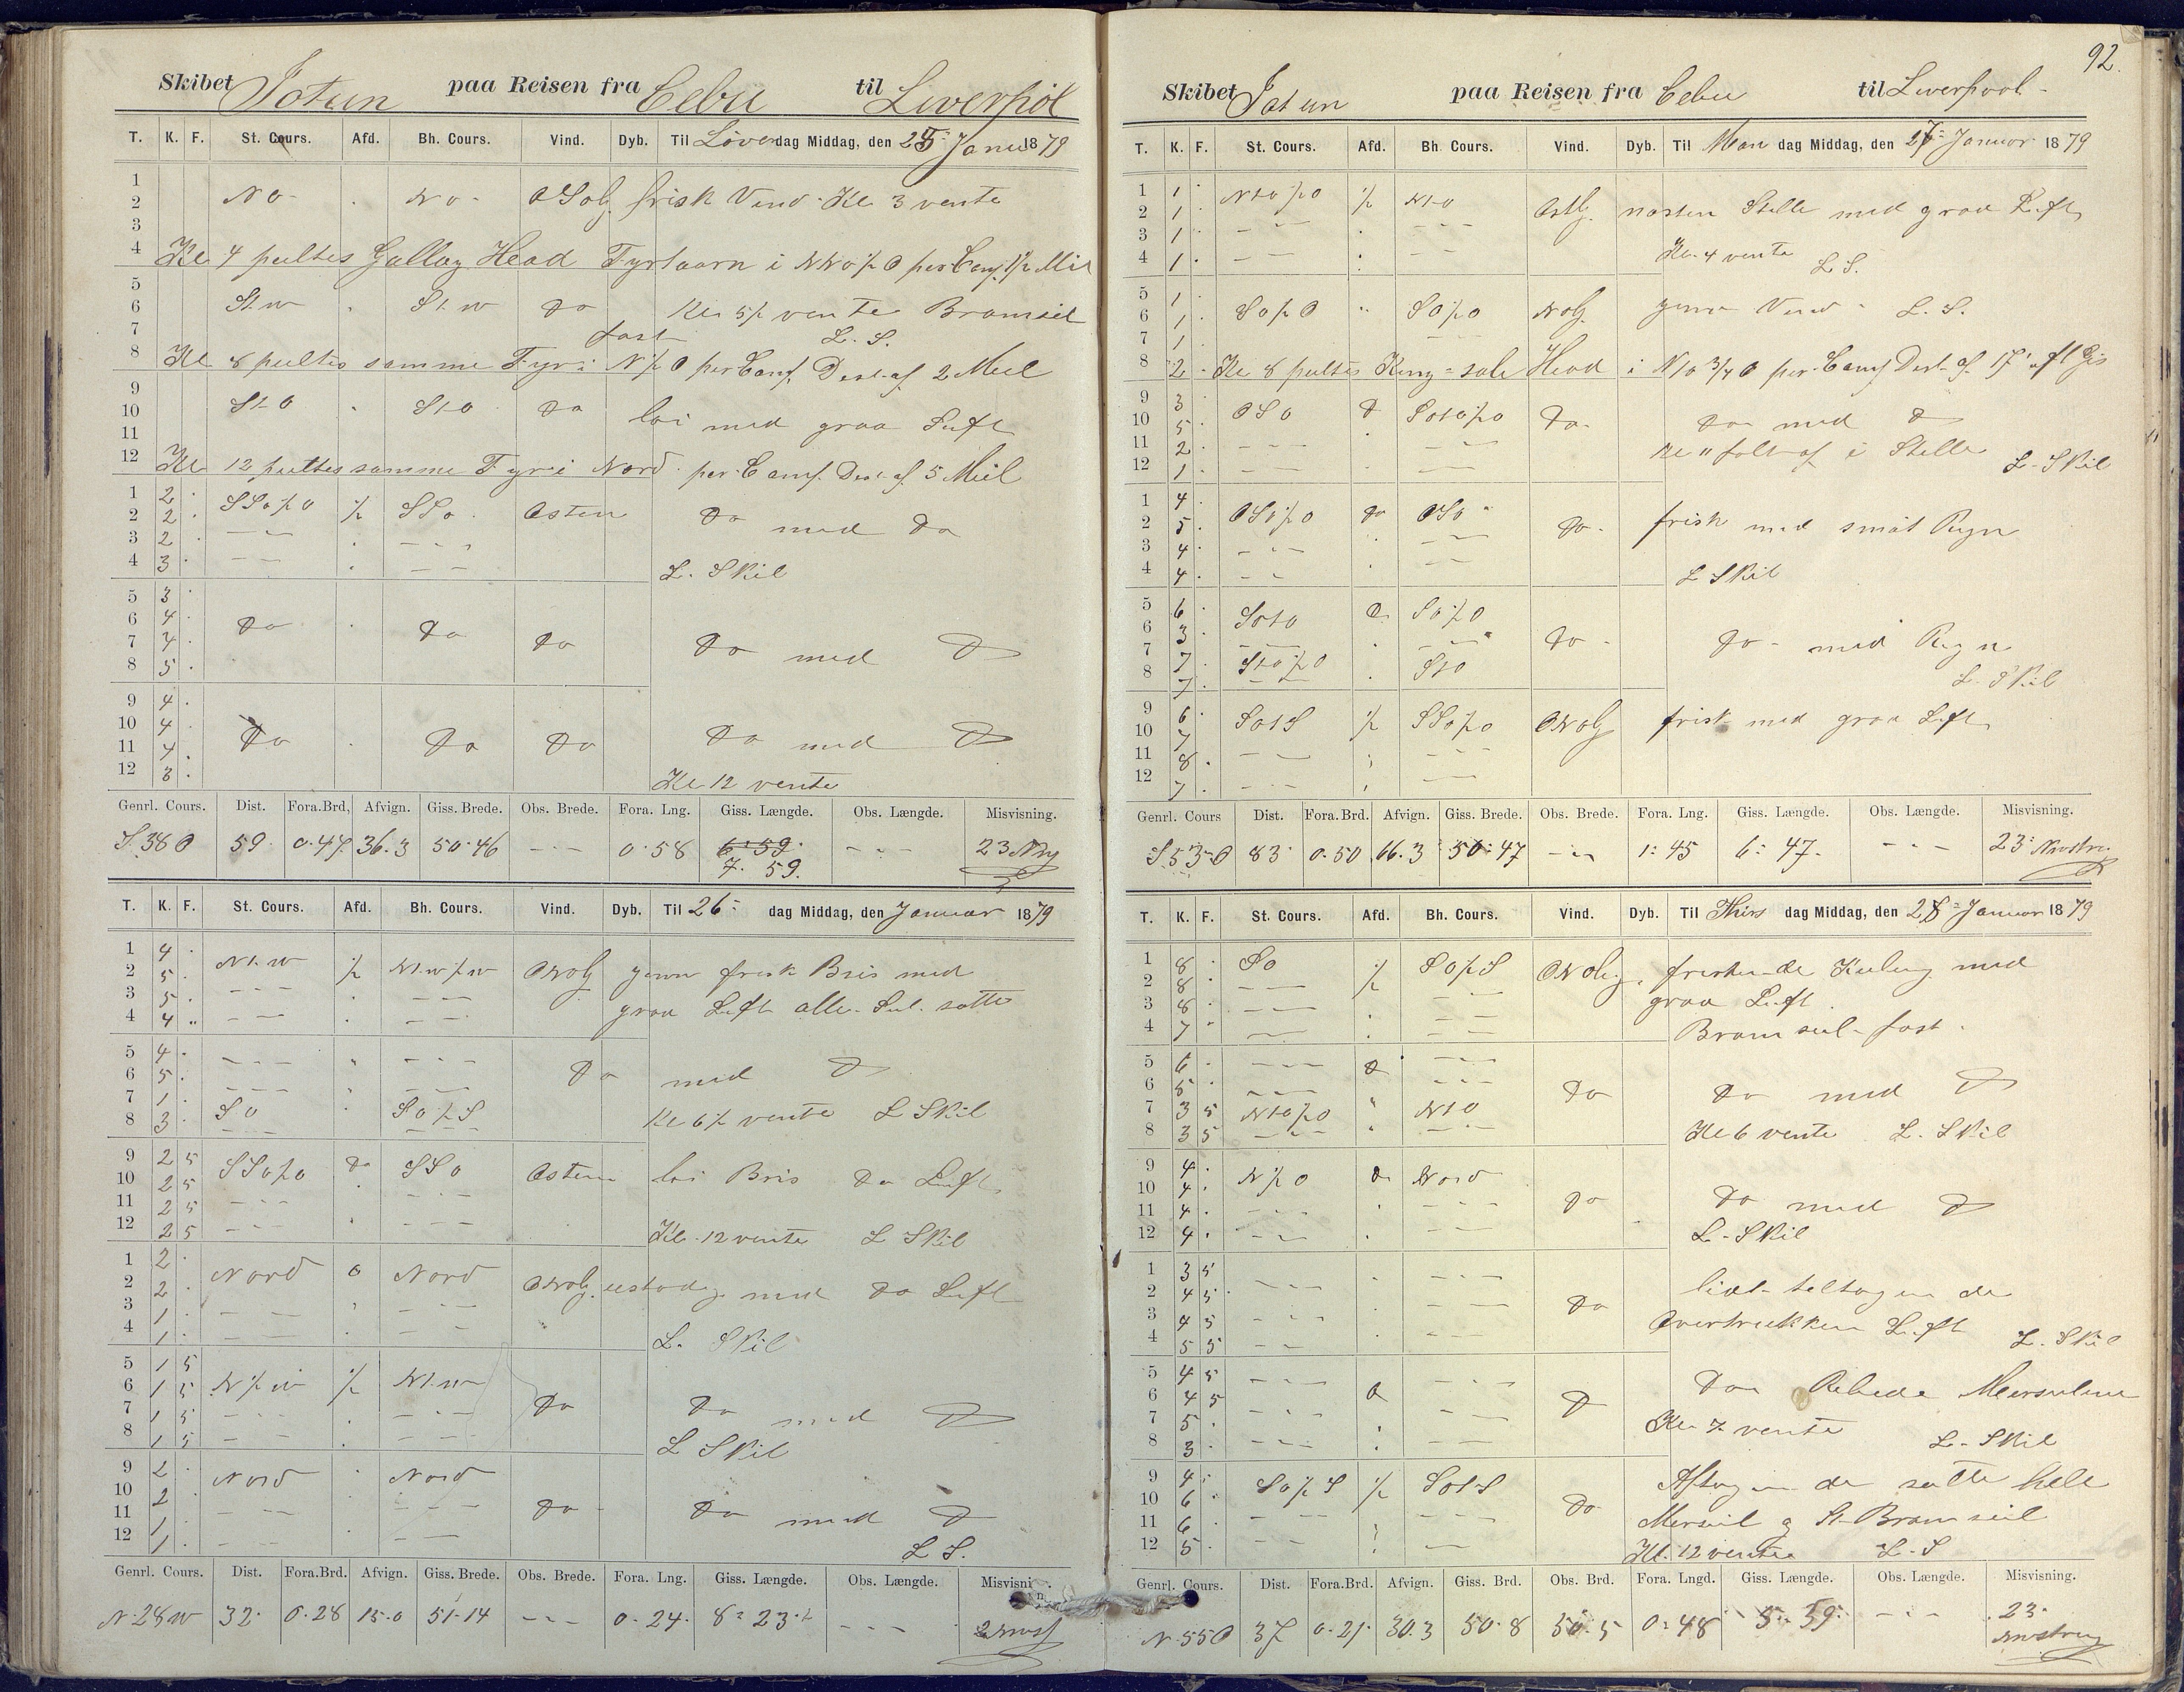 Skibet Jotun paa Reisen fra Cebu til Liverpol
T. K. F. St. Cours. Afd. Bh. Cours. Vind. Dyb. Til Löverdag Middag, den 25 Janu 1879
1
2 NO - . NO - OSOlg. frisk Vind - Kl. 3 vente
3
4 Kl 4 peiltes Galley Head Fyrtaarn i NNO½O per Comp. 1½ Mil
5
6 St. W . St. W Do Kl 5½ vente Bramseil
7 fast L. S.
8 Kl 8 peiltes samme Fyr i N½O per Comp. Dist. af 2 Miil
9
10 StO . StO Do löi med graa Luft
11
12 Kl 12 peiltes samme Fyr i Nord per Comp. Dist. af 5 Miil
1 2 .
2 2 . SSO½O ½ SSO . Osten Do med Do
3 2 .
4 3 . L. Skil
5 3 .
6 4 . Do . Do Do Do med Do
7 4 .
8 5 .
9 4 .
10 4 . Do . Do Do Do med Do
11 4 .
12 3 . Kl 12 vente
Genrl. Cours. Dist. Fora. Brd, Afvign. Giss. Brede. Obs. Brede. Fora. Lng. Giss. Længde. Obs. Længde. Misvisning.
S. 38 O 59. 0.47 36.3 50.46 - - - 0.58 6:59. - - - 23 NVg
7. 59.
T. K. F. St. Cours. Afd. Bh. Cours. Vind. Dyb. Til 26 - dag Middag, den Januar 1879
1 4 .
2 5 . Nt. W ½ Nt.W½W ONOlg jevn frisk Bris med
3 5 . - - - graa Luft alle Seil satte
4 4 " - - -
5 4 . - - - " - - -
6 5 . Do med Do
7 1 . - - - "
8 3 . SO . SO½S Kl 6½ vente L Skil
9 2 5
10 2 5 SSO½O Do SSO Osten löi Bris Do Luft
11 2 5 - - -
12 2 5 - - - Kl. 12 vente L Skil
1 2 .
2 2 . Nord 0 Nord ONOlg. ustadig med Do Luft
3 1 . - - -
4 1 . - - - L. Skil
5 1 5
6 1 5 N½W ½ Nt. W Do Do med Do
7 1 5
8 1 5 L Skil
9 2 .
10 2 . Nord . Nord Do Do med Do
11 1 .
12 1 . L S.
Genrl. Cours. Dist. Fora. Brd. Afvign. Giss. Brede. Obs. Brede. Fora. Lng. Giss. Længde. Obs. Længde. Misvisni
N. 28 W 32. 0.28 15.0 51.14 - - - 0.24. 8: 23. - - -
92.
Skibet Jotun paa Reisen fra Cebu til Liverpool -
T. K. F. St. Cours. Afd. Bh. Cours. Vind. Dyb. Til Man dag Middag, den 27 - Januar 1879
1 1 . NtO½O ½ NtO
2 1 . Ostlg. næsten Stille med graa Luft
3 1 .
4 1 . Kl. 4 vente L S.
5 1 .
6 1 . SO½O " SO½O NOlg. jevn Vind - L. S.
7 1 .
8 2 . Kl 8 peiltes King-sale Head i NtO¾O per Comp Dist. af 17' aft Gis
9 3
10 5 . OSO Do SOtO½O Do. Do med Do
11 2 . - - - Kl " falt af i Stille
12 1 . - - - L. Skil
1 4 .
2 5 . OSO½O Do OSO " Do - frisk med smaat Regn
3 4 . - - -
4 4 . - - L Skil
5 6 .
6 3 . SOtO Do SO½O Do - Do - med Regn
7 7 .
8 7 . StO½O . StO L. Skil
9 6 .
10 7 SOtS ½ SSO½O ONOlg frisk med graa Luft
11 8 . - - -
12 7 .
Genrl. Cours Dist. Fora. Brd. Afvign. Giss. Brede. Obs. Brede. Fora. Lng. Giss. Længde. Obs. Længde. Misvisning.
S 53 O 83. 0.50 66.3 50:47 - - 1: 45 6: 47. - - - 23:
T. K. F. St. Cours. Afd. Bh. Cours. Vind. Dyb. Til Thirs dag Middag, den 28 - Januar 1879
1 8 .
2 8 . SO ½ SO½S ONOlg. friskende Kuling med
3 8 . - - - graa Luft.
4 7 " Bramseil fast.
5 6 . - - - Do
6 5 . Do Do med Do
7 3 5 NtO½O " NtO
8 3 5 - - - Kl 6 vente L. Skil
9 4 .
10 4 . N½O Do Nord Do Do med Do
11 4 . - - -
12 4 . L - Skil
1 3 5 lidt tiltagende
2 4 5 . - - - Do
3 4 5 Overtrukken Luft
4 5 5 L. Skil
5 4 5 Do Rebede Merseilene
6 4 5 Do Do
7 5 . Kl - 7 - vente
8 3 . L - Skil
9 4 . SO½S ½ SOtS Aftagende satte hele
10 6 . Do
11 6 . Merseil og St. Bramseil
12 5 . Kl. 12 vente L - S
Genrl. Cours. Dist. Fora. Brd. Afvign. Giss. Brd. Obs. Brd. Fora. Lngd. Giss. Længde. Obs. Længde. Misvisning.
N. 55 O 37 0.21. 30.3 50.8 50.5 0:48 5: 59. - - - 23.